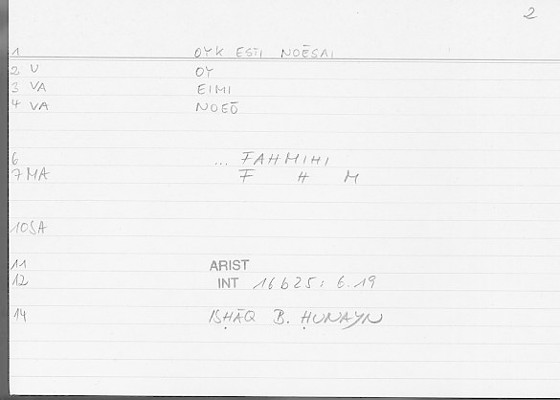 2
1 OYK ESTI NOĒSAI
2 U OY
3 VA EIMI
4 VA NOEŌ
6 ... FAHMIHI
7 MA F H M
10 SA
11 ARIST
12 INT 16b25; 6.19
14 ISḤĀQ B. ḤUNAYN